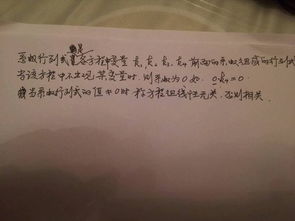 系数行列式是各方程中变量 x₁ x₂ x₃ x₄ 前面的系数组成的行列式
当该方程中不出现某变量时，则系数为0 如：0x₄=0
当系数行列式的值≠0时 称方程组线性无关，否则相关．